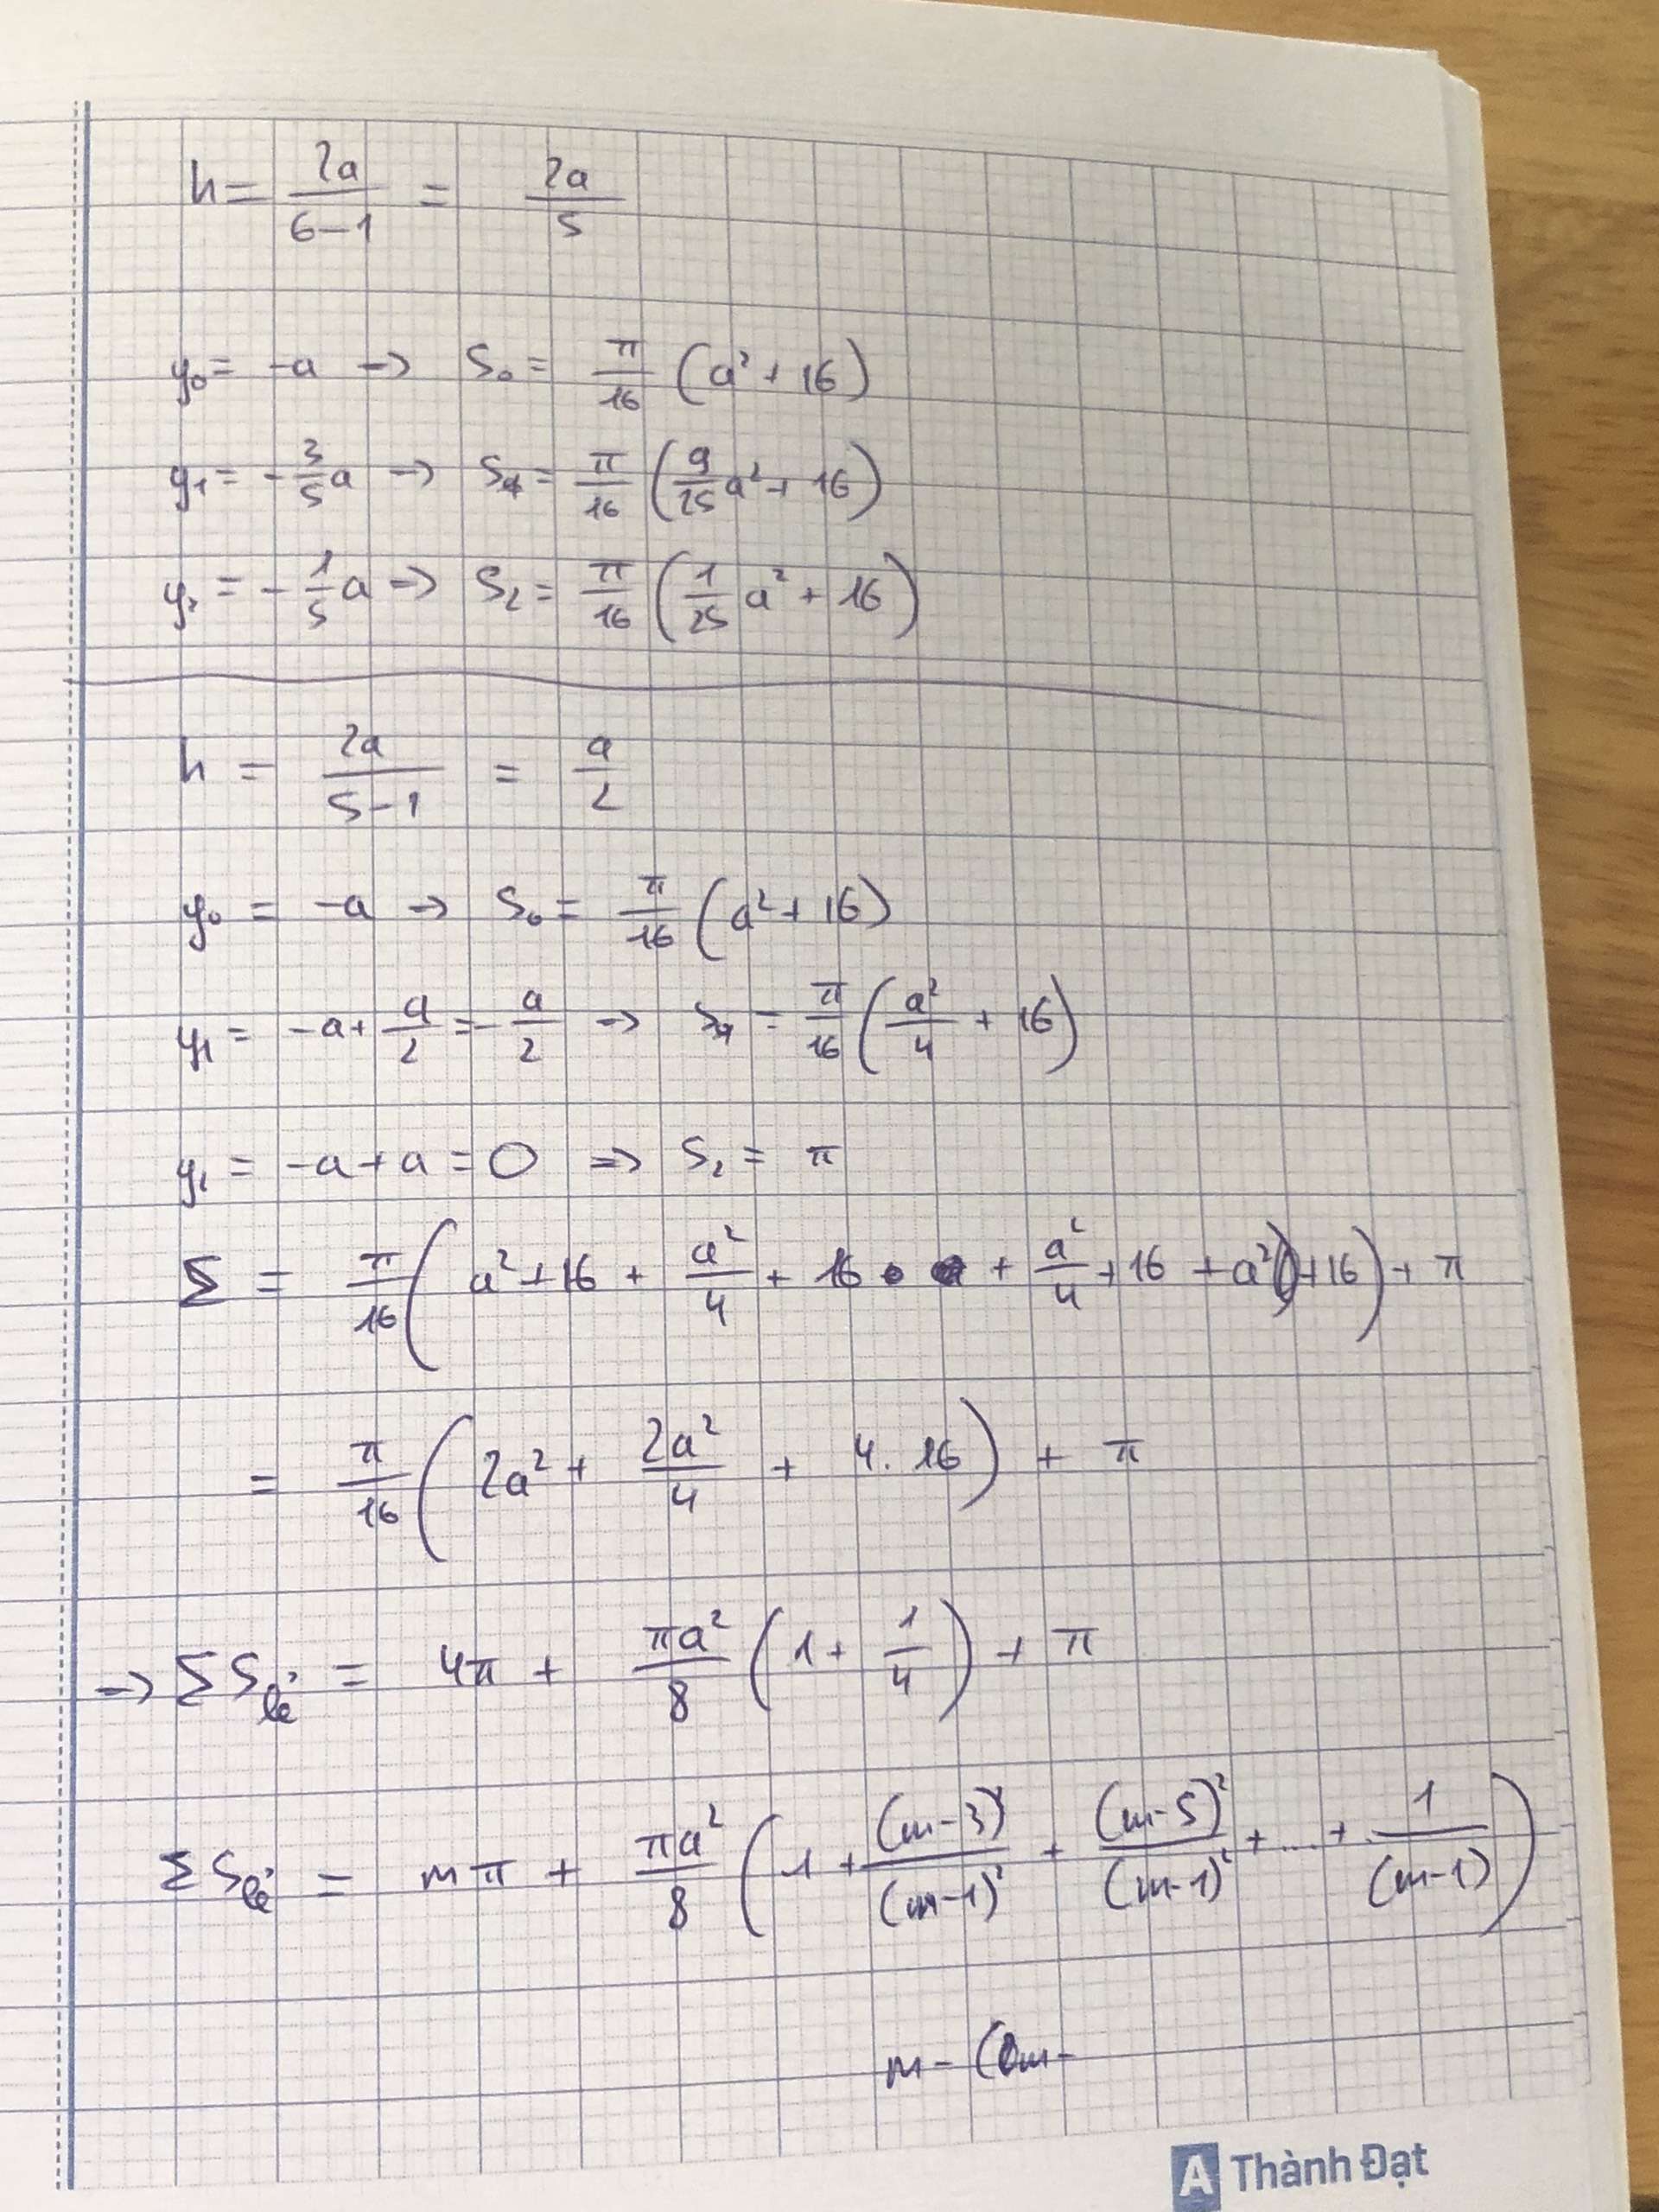 h = 2a/(6-1) = 2a/5
y₀ = -a → S₀ = π/16 (a² + 16)
y₁ = -3/5 a → S₁ = π/16 (9/25 a² + 16)
y₂ = -1/5 a → S₂ = π/16 (1/25 a² + 16)
h = 2a/(5-1) = a/2
y₀ = -a → S₀ = π/16 (a² + 16)
y₁ = -a + a/2 = -a/2 → S₁ = π/16 (a²/4 + 16)
y₂ = -a + a = 0 => S₂ = π
Σ = π/16 (a² + 16 + a²/4 + 16 + a²/4 + 16 + a² + 16) + π
= π/16 (2a² + 2a²/4 + 4.16) + π
→ Σ S lẻ = 4π + πa²/8 (1 + 1/4) + π
Σ S lẻ = mπ + πa²/8 (1 + (m-3)²/(m-1)² + (m-5)²/(m-1)² + ... + 1/(m-1))
m - (2m -
A Thành Đạt